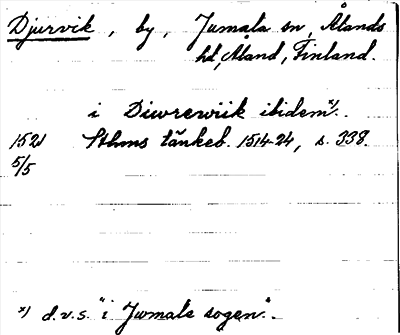 Djurvik, by, Jumala sn, Ålands
hd, Åland, Finland.
i Diwrewiik ibidem x).
1521 Sthms tänkeb. 1514-24, s. 338.
5/5
x) d.v.s. "i Jwmala sogen".